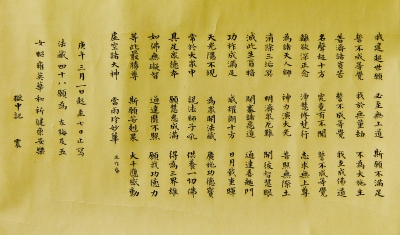 我建超世願 必至無上道 斯願不滿足
誓不成等覺 我於無量劫 不為大施主
普濟諸貧苦 誓不成等覺 我至成佛道
名聲超十方 究竟有不聞 誓不成等覺
離欲深正念 淨慧修梵行 志求無上尊
為諸天人師 神力演大光 普照無際土
消除三垢冥 明濟眾厄難 開彼智慧眼
滅此昏盲闇 閉塞諸惡道 通達善趣門
功祚成滿足 威曜朗十方 日月戢重暉
天光隱不現 為眾開法藏 廣施功德寶
常於大眾中 說法師子吼 供養一切佛
具足眾德本 願慧悉成滿 得為三界雄
如佛無礙智 通達靡不照 願我功德力
等此最勝尊 斯願若剋果 大千應感動
虛空諸天神 當雨珍妙華
庚午三月一日起至七日止寫
法藏四十八願為 母及五
女 英華和祈健康安樂
獄中記 震